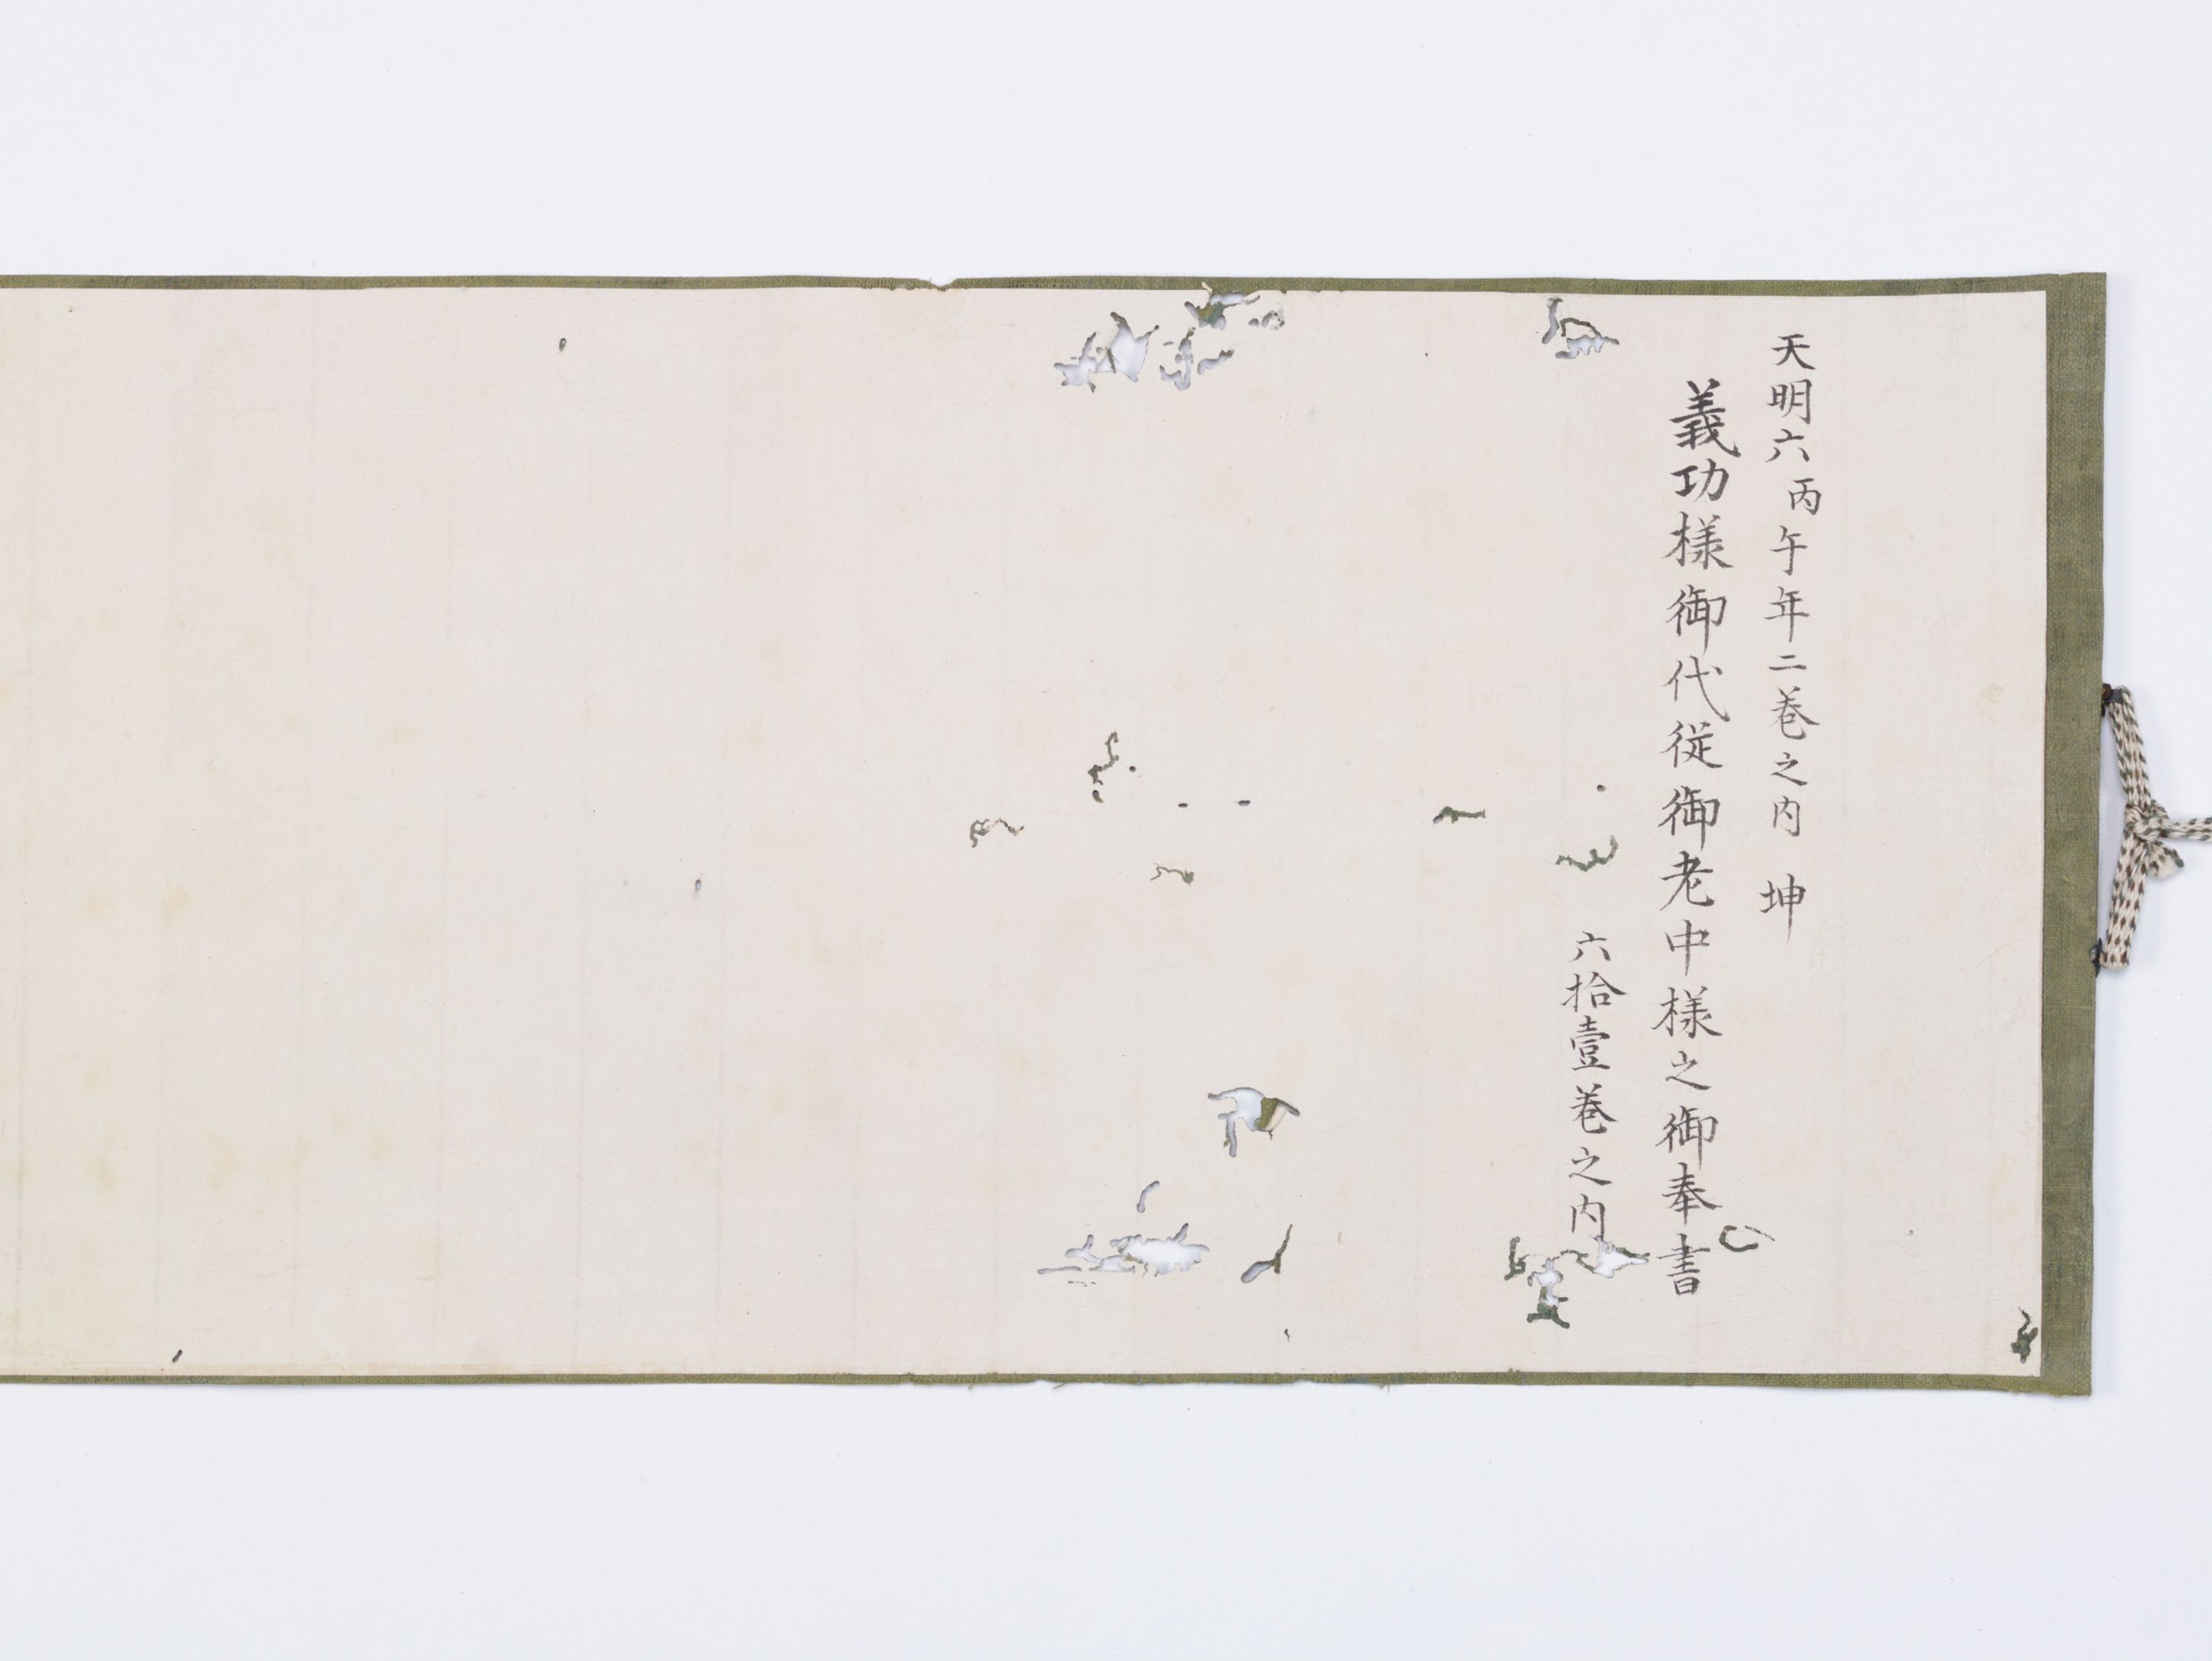 天明六丙午年二巻之内 坤
義功様御代従御老中様之御奉書
六拾壹巻之内